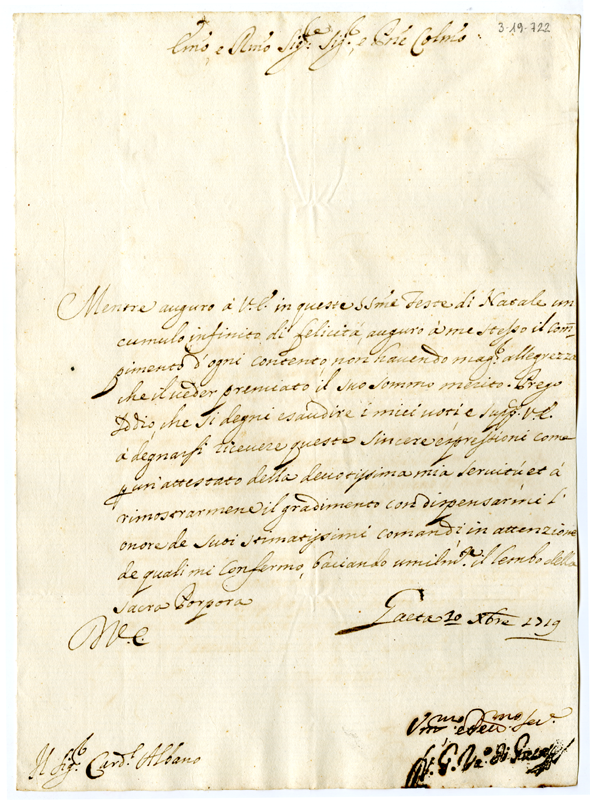 3-19-722
Emo, e Rmo Sigre Sigr, e Prne Colmo
Mentre auguro à V. E. in queste SSme Feste di Natale un
cumulo infinito di felicità, auguro à me stesso il com-
pimento d'ogni contento non havendo magr allegrezza
che il veder premiato il Suo Sommo merito. Prego
Iddio che Si degni esaudire i miei voti e supp. V. E.
à degnarsi ricevere queste Sincere espressioni come
un'attestato della devotissima mia servitù et à
rimostrarmene il gradimento con dispensarmi l'
onore de Suoi stimatissimi comandi, in attenzione
de quali mi Confermo, baciando umilmte il lembo della
Sacra Porpora
D V. E.
Gaeta 10 Xbre 1719
Il Sigr Cardl Albano
Ummo e Devmo Ser.